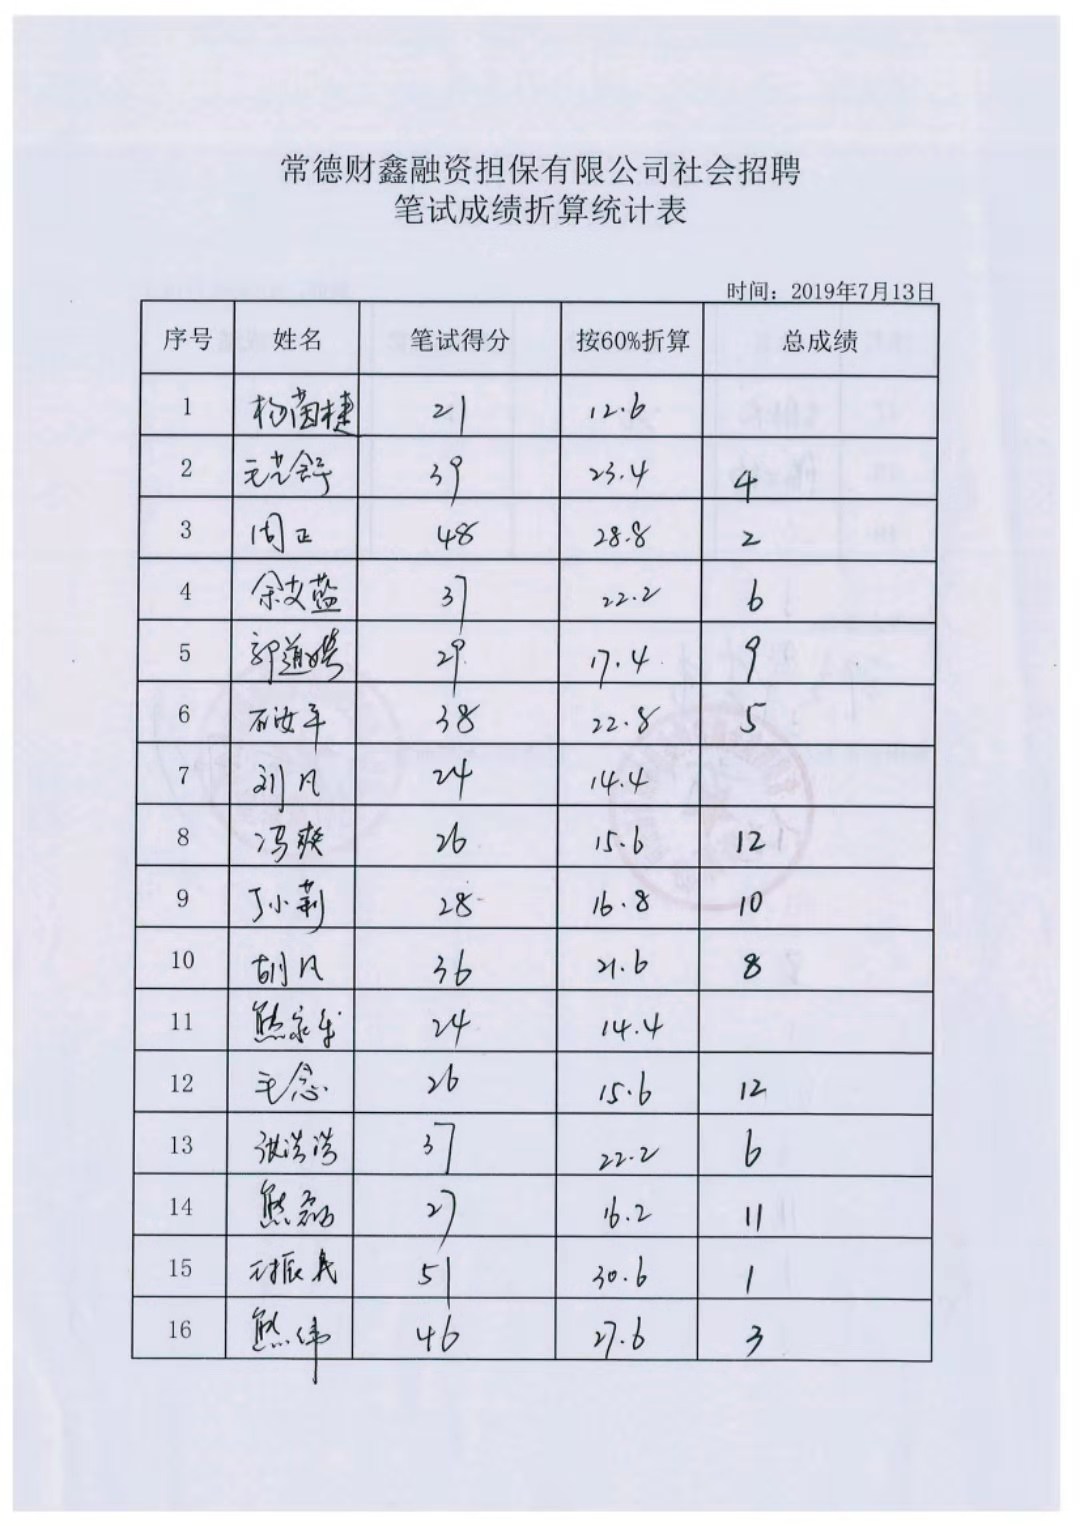 常德财鑫融资担保有限公司社会招聘
笔试成绩折算统计表
时间：2019年7月13日
序号 姓名 笔试得分 按60%折算 总成绩
1 杨茵捷 21 12.6
2 39 23.4 4
3 周正 48 28.8 2
4 余文蓝 37 22.2 6
5 郭道娉 29 17.4 9
6 石汝平 38 22.8 5
7 刘凡 24 14.4
8 冯爽 26 15.6 12
9 丁小莉 28 16.8 10
10 胡凡 36 21.6 8
11 熊家乐 24 14.4
12 毛念 26 15.6 12
13 张浩浩 37 22.2 6
14 熊磊 27 16.2 11
15 51 30.6 1
16 熊伟 46 27.6 3